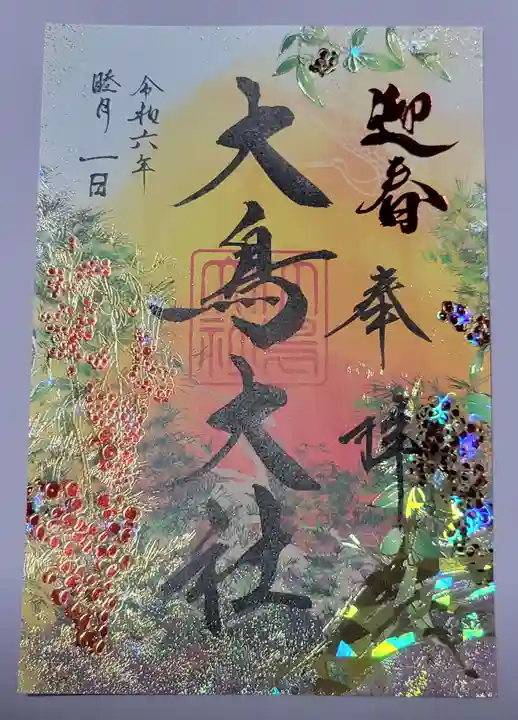 迎春
奉拝
大鳥大社
令和六年
睦月一日
大鳥大社